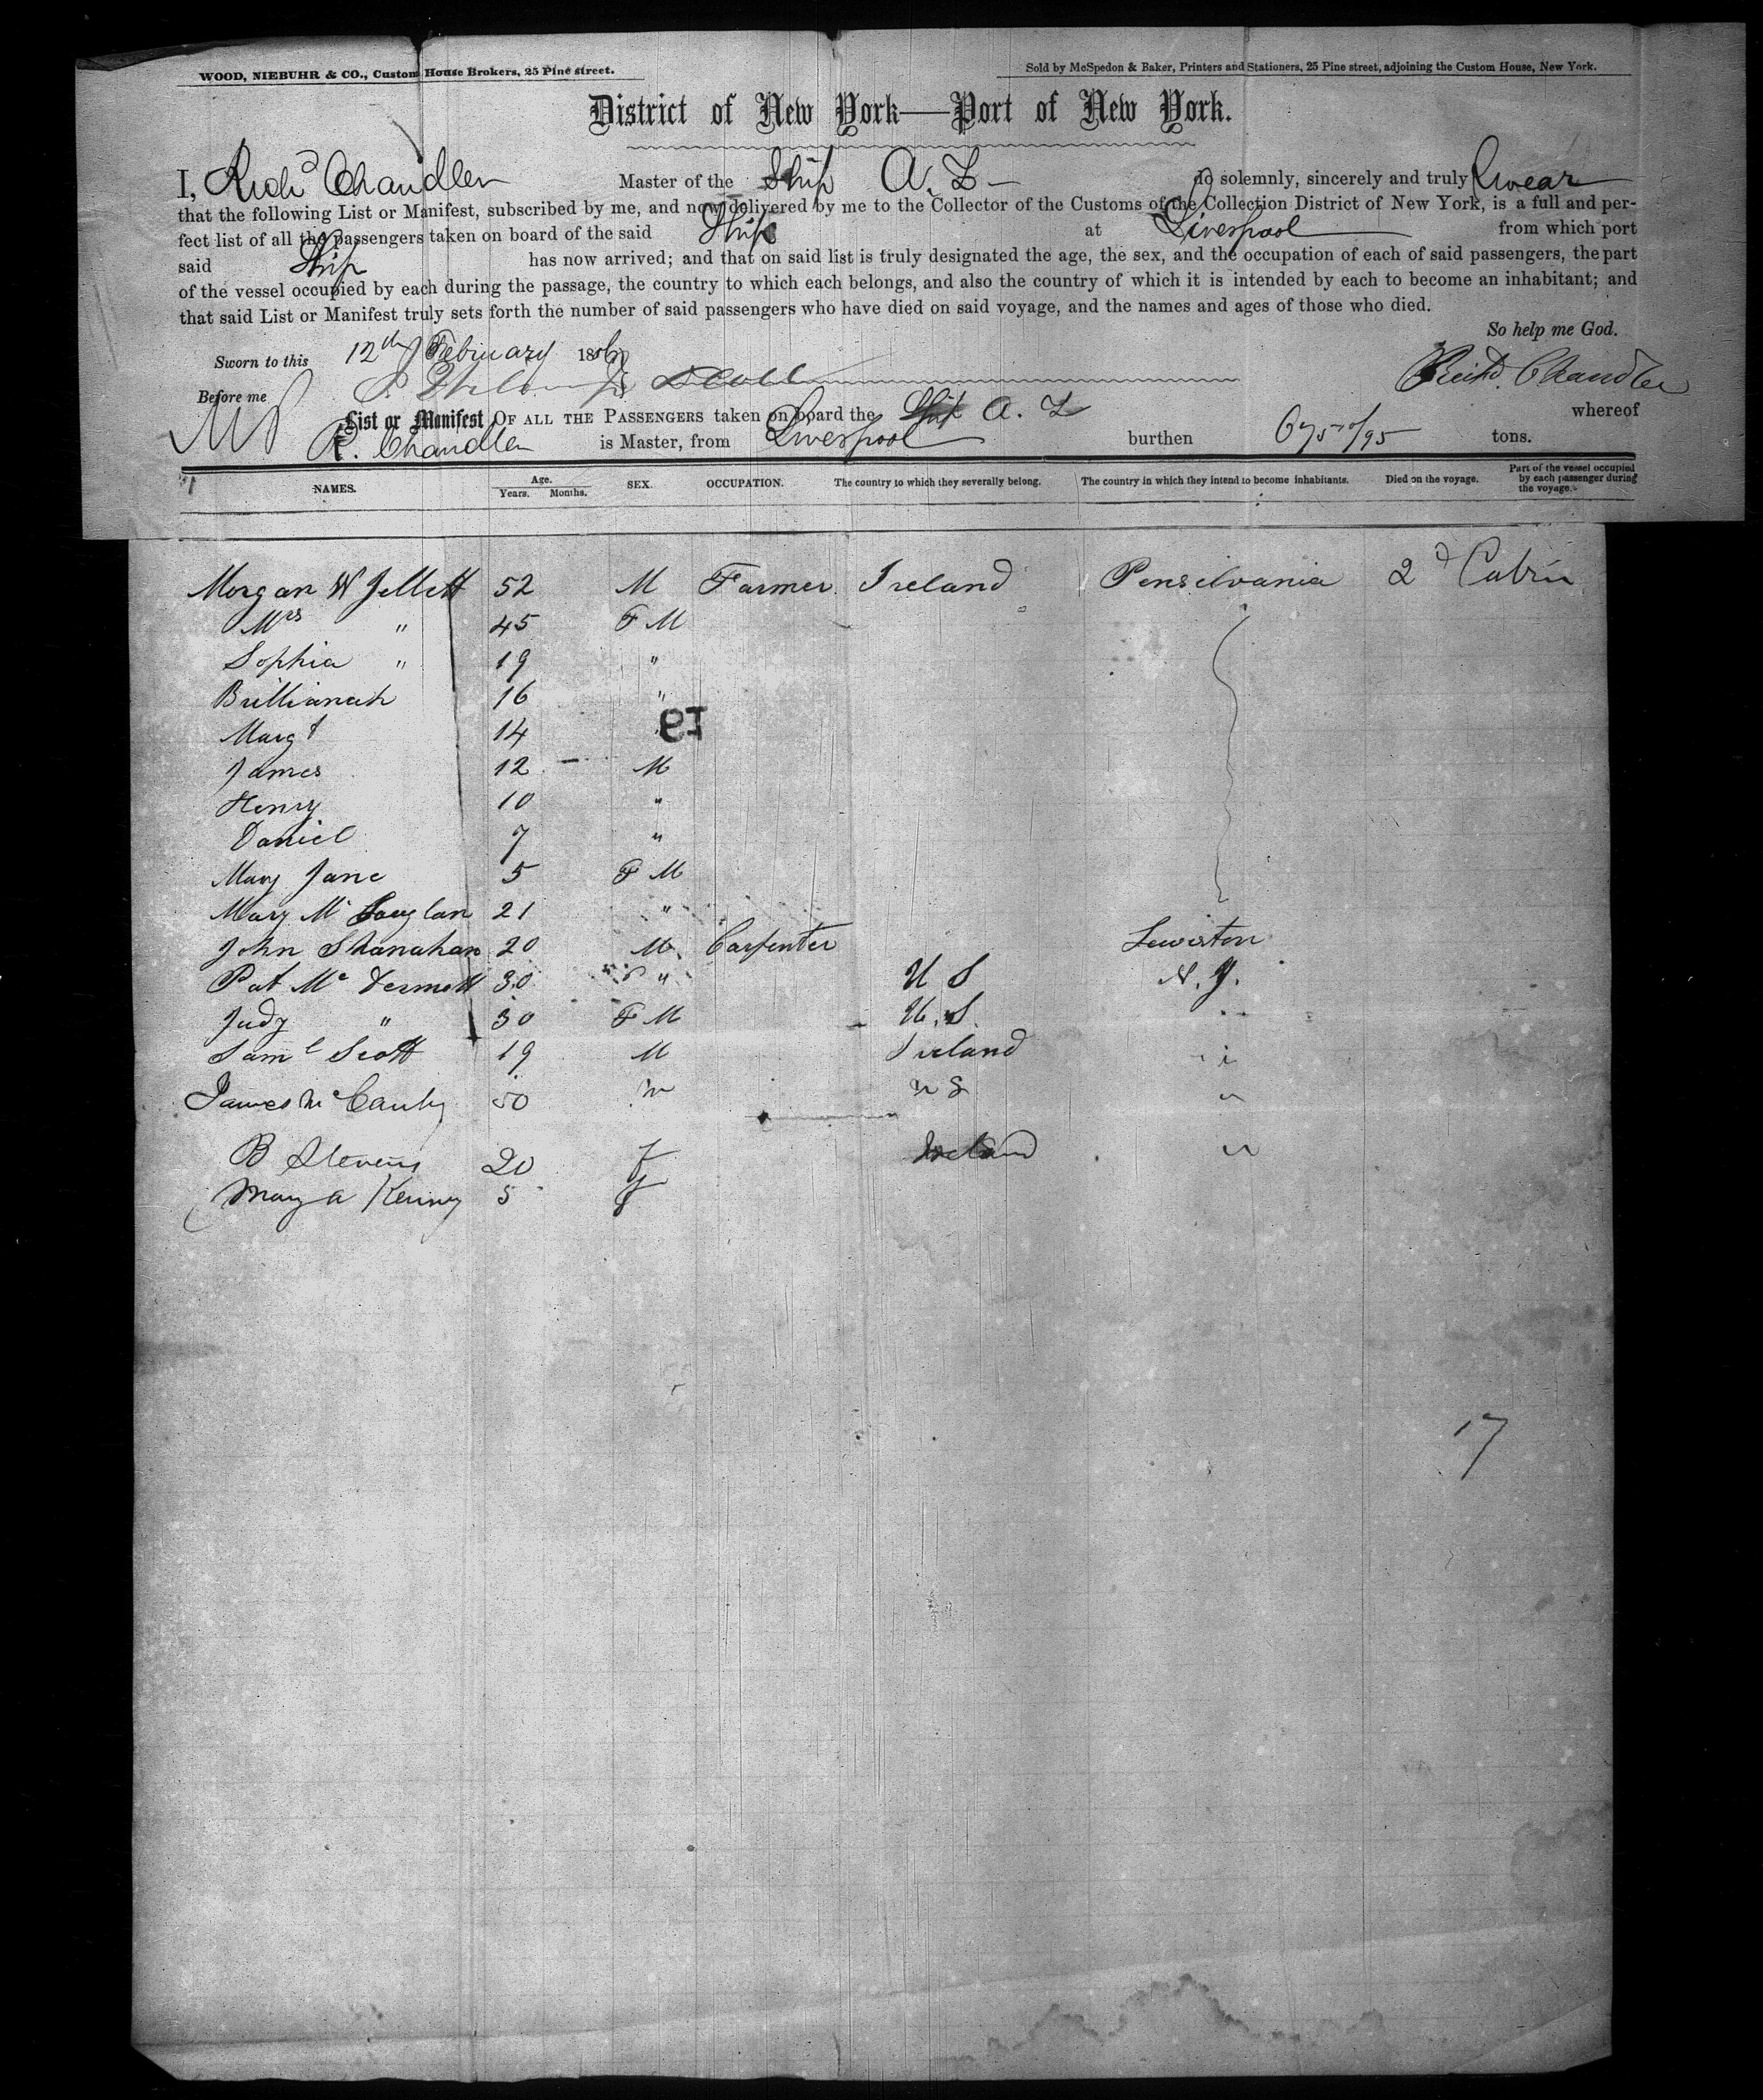 WOOD, NIEBUHR & CO., Custom House Brokers, 25 Pine street.
Sold by McSpedon & Baker, Printers and Stationers, 25 Pine street, adjoining the Custom House, New York.
District of New York—Port of New York.
I, Richd Chandler Master of the Ship A. Z — do solemnly, sincerely and truly Swear
that the following List or Manifest, subscribed by me, and now delivered by me to the Collector of the Customs of the Collection District of New York, is a full and per-
fect list of all the passengers taken on board of the said Ship at Liverpool from which port
said Ship has now arrived; and that on said list is truly designated the age, the sex, and the occupation of each of said passengers, the part
of the vessel occupied by each during the passage, the country to which each belongs, and also the country of which it is intended by each to become an inhabitant; and
that said List or Manifest truly sets forth the number of said passengers who have died on said voyage, and the names and ages of those who died.
So help me God.
Sworn to this 12th February 1856
Richd. Chandler
Before me
List or Manifest OF ALL THE PASSENGERS taken on board the Ship A. Z whereof
R. Chandler is Master, from Liverpool burthen 675 /95 tons.
NAMES. Age. Years. Months. SEX. OCCUPATION. The country to which they severally belong. The country in which they intend to become inhabitants. Died on the voyage. Part of the vessel occupied by each passenger during the voyage.
Morgan W Jellett 52 M Farmer Ireland Pensilvania 2d Cabin
Mrs " 45 F M
Sophia " 19 "
16 "
Margt 14
19
James 12 M
Henry 10 "
Daniel 7 "
Mary Jane 5 F M
Mary Mc 21 "
John Shanahan 20 M Carpenter Lewiston
Pat Mc Dermett 30 " U S N. Y.
Judy " 30 F M U. S. "
Saml Scott 19 M Ireland "
James Mc 50 m U S "
B Stevens 20 f Ireland "
Mary A Kenny 5 f
17